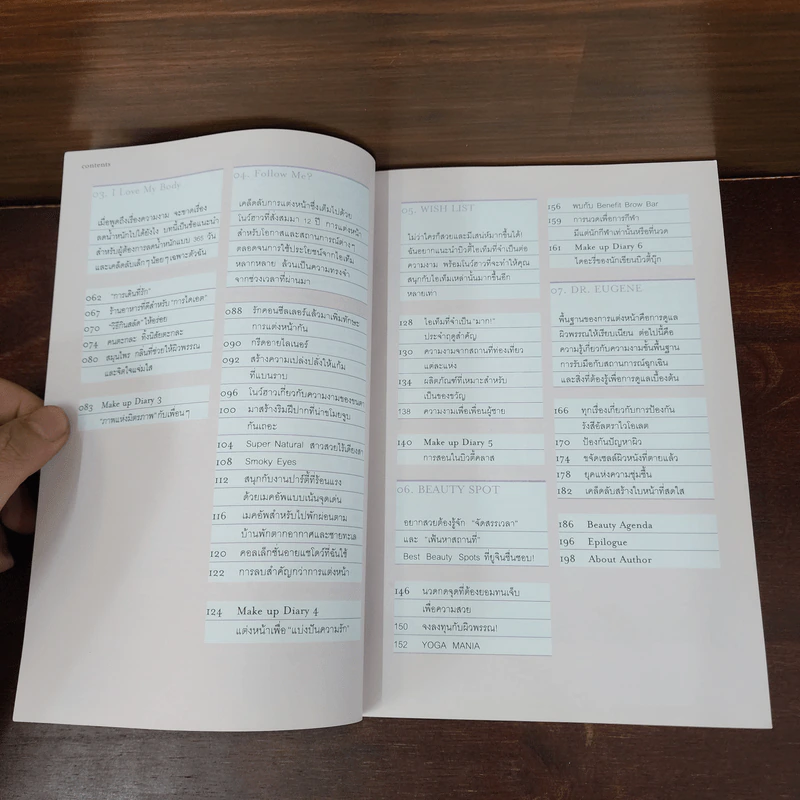 contents
03. I Love My Body
เมื่อพูดถึงเรื่องความงาม จะขาดเรื่อง
ลดน้ำหนักไปได้ยังไง บทนี้เป็นข้อแนะนำ
สำหรับผู้ต้องการลดน้ำหนักแบบ 365 วัน
และเคล็ดลับเล็กๆ น้อยๆ เฉพาะตัวฉัน
062 "การเดินที่รัก"
067 ร้านอาหารที่ดีสำหรับ "การไดเอต"
070 "วิธีกินสลัด" ให้อร่อย
074 คนตะกละ ทิ้งนิสัยตะกละ
080 สมุนไพร กลิ่นที่ช่วยให้ผิวพรรณ
และจิตใจแจ่มใส
083 Make up Diary 3
"ภาพแห่งมิตรภาพ" กับเพื่อนๆ
04. Follow Me?
เคล็ดลับการแต่งหน้าซึ่งเต็มไปด้วย
โนว์ฮาวที่สั่งสมมา 12 ปี การแต่งหน้า
สำหรับโอกาสและสถานการณ์ต่างๆ
ตลอดจนการใช้ประโยชน์จากไอเท็ม
หลากหลาย ล้วนเป็นความทรงจำ
จากช่วงเวลาที่ผ่านมา
088 รักคอนซีลเลอร์แล้วมาเพิ่มทักษะ
การแต่งหน้ากัน
090 กรีดอายไลเนอร์
092 สร้างความเปล่งปลั่งให้แก้ม
ที่แบนราบ
096 โนว์ฮาวเกี่ยวกับความงามของขนตา
100 มาสร้างริมฝีปากที่น่าขโมยจูบ
กันเถอะ
104 Super Natural สาวสวยไร้เดียงสา
108 Smoky Eyes
112 สนุกกับงานปาร์ตี้ที่ร้อนแรง
ด้วยเมคอัพแบบเน้นจุดเด่น
116 เมคอัพสำหรับไปพักผ่อนตาม
บ้านพักตากอากาศและชายทะเล
120 คอลเล็กชันอายแชโดว์ที่ฉันใช้
122 การลบสำคัญกว่าการแต่งหน้า
124 Make up Diary 4
แต่งหน้าเพื่อ "แบ่งปันความรัก"
05. WISH LIST
ไม่ว่าใครก็สวยและมีเสน่ห์มากขึ้นได้!
ฉันอยากแนะนำบิวตี้ไอเท็มที่จำเป็นต่อ
ความงาม พร้อมโนว์ฮาวที่จะทำให้คุณ
สนุกกับไอเท็มเหล่านั้นมากขึ้นอีก
หลายเท่า
128 ไอเท็มที่จำเป็น "มาก!"
ประจำฤดูสำคัญ
130 ความงามจากสถานที่ท่องเที่ยว
แต่ละแห่ง
134 ผลิตภัณฑ์ที่เหมาะสำหรับ
เป็นของขวัญ
138 ความงามเพื่อเพื่อนผู้ชาย
140 Make up Diary 5
การสอนในบิวตี้คลาส
06. BEAUTY SPOT
อยากสวยต้องรู้จัก "จัดสรรเวลา"
และ "เฟ้นหาสถานที่"
Best Beauty Spots ที่ยูจินชื่นชอบ!
146 นวดกดจุดที่ต้องยอมทนเจ็บ
เพื่อความสวย
150 จงลงทุนกับผิวพรรณ!
152 YOGA MANIA
156 พบกับ Benefit Brow Bar
159 การนวดเพื่อการกีฬา
มีแต่นักกีฬาเท่านั้นหรือที่นวด
161 Make up Diary 6
ไดอะรี่ของนักเขียนบิวตี้บุ๊ก
07. DR. EUGENE
พื้นฐานของการแต่งหน้าคือการดูแล
ผิวพรรณให้เรียบเนียน ต่อไปนี้คือ
ความรู้เกี่ยวกับความงามขั้นพื้นฐาน
การรับมือกับสถานการณ์ฉุกเฉิน
และสิ่งที่ต้องรู้เพื่อการดูแลเบื้องต้น
166 ทุกเรื่องเกี่ยวกับการป้องกัน
รังสีอัลตราไวโอเลต
170 ป้องกันปัญหาผิว
174 ขจัดเซลล์ผิวหนังที่ตายแล้ว
178 ยุคแห่งความชุ่มชื้น
182 เคล็ดลับสร้างใบหน้าที่สดใส
186 Beauty Agenda
196 Epilogue
198 About Author